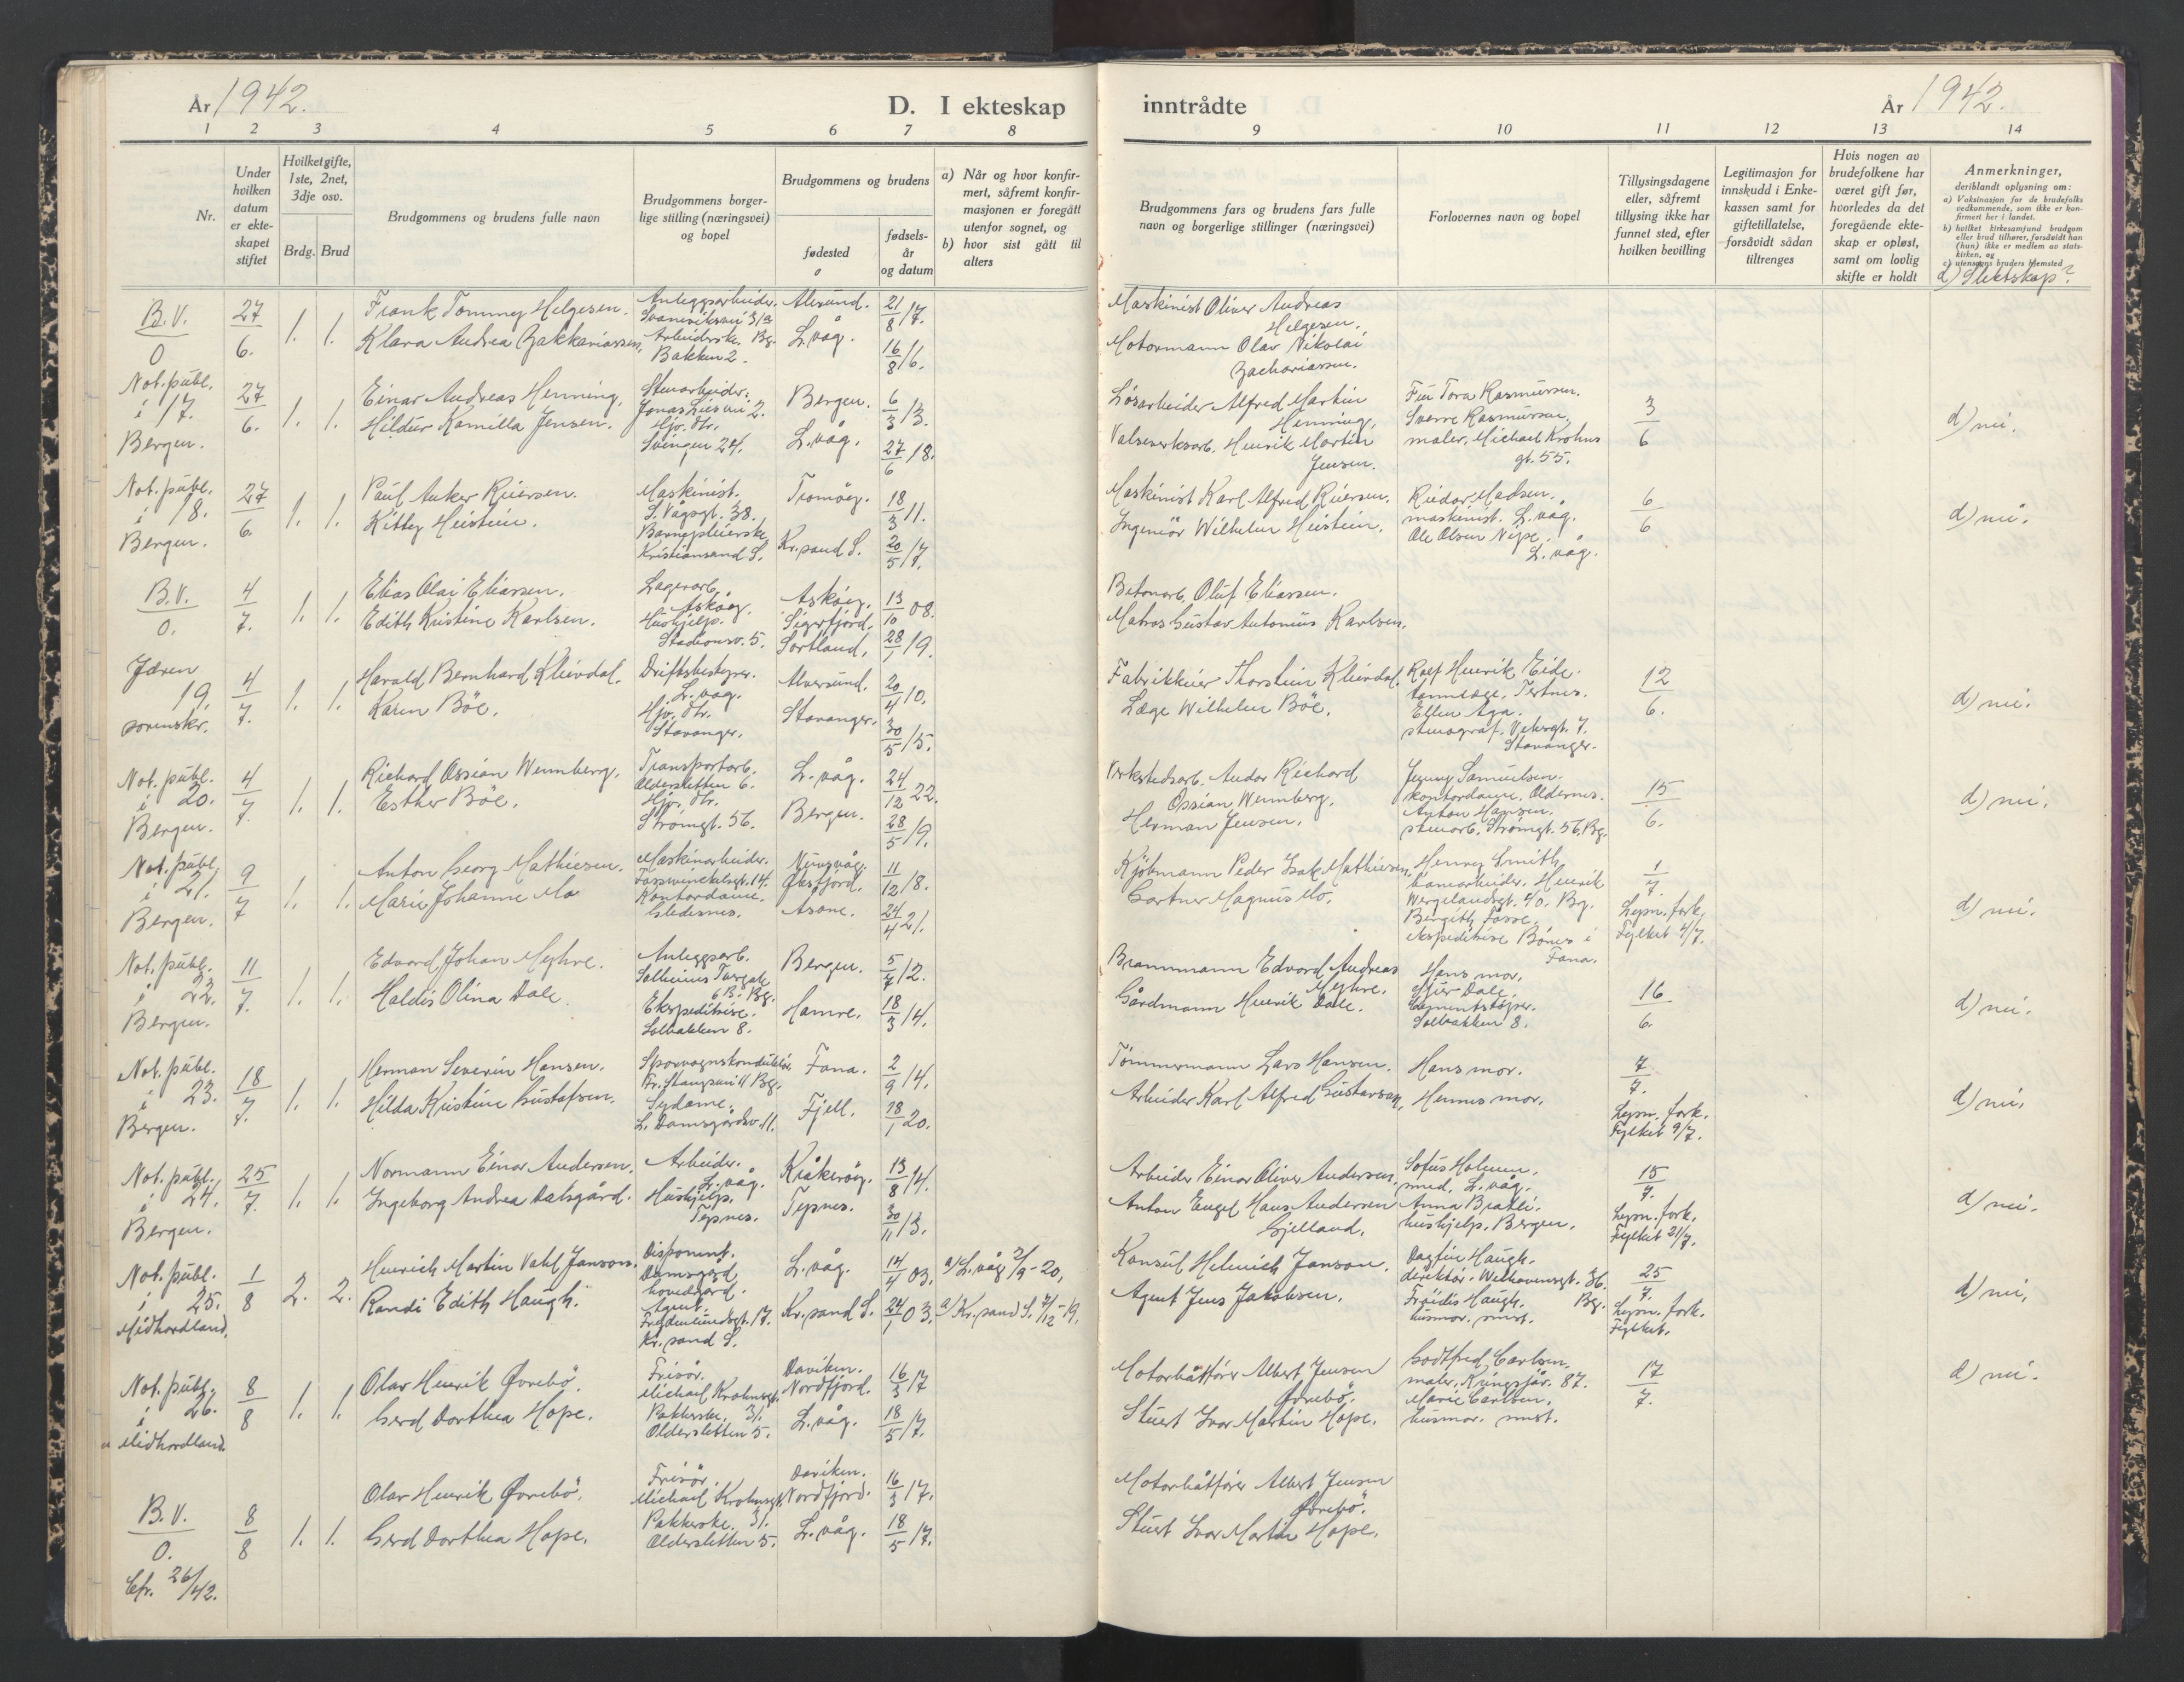 År 1942.
D. I ekteskap
inntrådte
År 1942.
1 2 3 4 5 6 7 8 9 10 11 12 13 14
Nr.
Under hvilken datum er ekteskapet stiftet
Hvilket gifte, 1ste, 2net, 3dje osv.
Brdg. Brud
Brudgommens og brudens fulle navn
Brudgommens borgerlige stilling (næringsvei) og bopel
Brudgommens og brudens
fødested
fødselsår og datum
a) Når og hvor konfirmert, såfremt konfirmasjonen er foregått utenfor sognet, og
b) hvor sist gått til alters
Brudgommens fars og brudens fars fulle navn og borgerlige stillinger (næringsvei)
Forlovernes navn og bopel
Tillysingsdagene eller, såfremt tillysing ikke har funnet sted, efter hvilken bevilling
Legitimasjon for innskudd i Enkekassen samt for giftetillatelse, forsåvidt sådan tiltrenges
Hvis nogen av brudefolkene har været gift før, hvorledes da det foregående ekteskap er opløst, samt om lovlig skifte er holdt
Anmerkninger,
deriblandt oplysning om:
a) Vaksinasjon for de brudefolks vedkommende, som ikke er konfirmert her i landet.
b) hvilket kirkesamfund brudgom eller brud tilhører, forsåvidt han (hun) ikke er medlem av statskirken, og
c) utensogns bruders hjemsted
d) Slektskap?
B.V. 0
27/6.
1. 1.
Frank Tommy Helgesen.
Klara Andrea Zakkariassen,
Anleggsarbeider.
Svaneviksvei 31a
Arbeiderske. Bg.
Bakken 2.
Alesund. 21/8 17.
L.våg. 16/8 16.
Maskinist Oliver Andreas
Helgesen.
Motormann Olav Nikolai
Zachariassen.
Not. publ.
i 17.
Bergen.
27/6.
1. 1.
Einar Andreas Henning.
Hildur Kamilla Jensen.
Stuearbeider.
Jonas Liesvei 2.
Hjv. dtr.
Svingen 24.
Bergen. 6/3 13.
L.våg. 27/6 18.
Løsarbeider Alfred Martin
Henning.
Valseverksarb. Henrik Martin
Jensen.
Fru Tora Rasmussen.
Sverre Rasmussen,
maler, Michael Krohns
gt. 55.
3/6
d) nei.
Not. publ.
i 18.
Bergen.
27/6.
1. 1.
Paul Anker Riiersen.
Kitty Heistein.
Maskinist.
S. Vågsgt. 38.
Barnepleierske
Kristiansand S.
Tromöy. 18/3 11.
Kr.sand S. 20/5 17.
Maskinist Karl Alfred Riiersen.
Ingeniör Wilhelm Heistein.
Reidar Madsen.
maskinist. L.våg.
Ole Olsen Nipe.
L.våg.
6/6
d) nei.
B.V. 0.
4/7.
1. 1.
Elias Olai Eliassen.
Edith Kristine Karlsen.
Lagerarb.
Askøy.
Hushjelp.
Stadionsv. 5.
Askøy. 13/10 08.
Sigerfjord,
Sortland, 28/1 19.
Betonarb. Oluf Eliassen.
Matros Gustav Antonius Karlsen.
Jæren
19.
sorenskr.
4/7.
1. 1.
Harald Bernhard Kleivdal.
Karen Böe.
Driftsbestyrer.
L.våg.
Hjv. dtr.
Stavanger.
Alversund. 20/4 10.
Stavanger. 30/5 15.
Fabrikkeier Thorstein Kleivdal.
Læge Wilhelm Böe.
Rolf Henrik Eide.
tannlæge, Tertnes.
Ellen Aga.
stenograf.
Stavanger.
12/6.
d) nei.
Not. publ.
i 20.
Bergen.
4/7.
1. 1.
Richard Ossian Wennberg.
Esther Böe.
Transportarb.
Oldersletten 6.
Hjv. dtr.
Strömgt. 56.
L.våg. 24/12 22.
Bergen. 28/5 19.
Verkstedsarb. Andor Richard
Ossian Wennberg.
Herman Jensen.
Jenny Samuelsen.
kontordame, Oldernes.
Anton Hansen.
stuearb. Strömgt. 56, Bg.
15/6.
d) nei.
Not. publ.
i 21.
Bergen.
9/7
1. 1.
Anton Georg Mathiesen.
Marie Johanne Mo
Maskinarbeider.
Fosswinckelsgt. 14.
Kontordame.
Gledesnes.
Øksfjord. 11/12 18.
Asane. 24/4 21.
Kjöbmann Peder Isak Mathiesen.
Gartner Magnus Mo.
Henry Smith
Henrik
Wergelandsgt. 40. Bg.
Bergith Fosse.
ekspeditrise Bönes i
Fana.
1/7.
Lysn. fork.
Fylket 4/7.
d) nei.
Not. publ.
i 22.
Bergen.
11/7.
1. 1.
Edvard Johan Myhre.
Haldis Olina Dale.
Anleggsarb.
Solheims Torgate
6 B. Bg.
Ekspeditrise.
Solbakken 8.
Bergen. 5/7 12.
Hamre. 18/3 14.
Brannmann Edvard Andreas
Myhre.
Gårdmann Henrik Dale.
Hans mor.
Dale.
Solbakken 8.
16/6.
d) nei.
Not. publ.
i 23.
Bergen.
18/7.
1. 1.
Herman Severin Hansen.
Hilda Kristine Gustafsen.
Sporvognskonduktör
Fr. Stangsvei 11 Bg.
Sydame.
L. Damsgårdsv. 11.
Fana. 2/9 14.
Fjell. 18/1 20.
Tömmermann Lars Hansen.
Arbeider Karl Alfred Gustavson,
Hans mor.
Hennes mor.
7/7.
Lysn. fork.
Fylket 9/7.
d) nei.
Not. publ.
i 24.
Bergen.
25/7.
1. 1.
Normann Einar Andersen.
Ingeborg Andrea Dalsgård.
Arbeider.
L.våg.
Hushjelp.
Tennes.
Kråkeröy. 13/8 14.
30/11 13.
Arbeider Einar Oliver Andersen,
Anton Engel Hans Andersen
Gjelland.
Sofus Holmen.
smed. L.våg.
Anna Bratli.
hushjelp, Bergen.
15/7.
Lysn. fork.
Fylket 21/7.
d) nei.
Not. publ.
i 25.
Midhordland.
1/8
2. 2.
Henrich Martin Vahl Janson.
Randi Edith Haugh.
Disponent.
Damsgård
hovedgård.
Agent.
Frydenlundsgt. 17.
Kr.sand S.
L.våg. 14/4 03.
Kr.sand S. 24/1 03.
a) L.våg 5/9-20.
a) Kr.sand S. 7/12-19.
Konsul Helmich Janson.
Agent Jens Jakobsen.
Dagfin Haugh.
direktør. Welhavensgt. 36.
Bg.
Fröidis Haugh.
husmor. smst.
25/7.
Lysn. fork.
Fylket.
d) nei.
Not. publ.
i 26.
Midhordland.
8/8
1. 1.
Olav Henrik Øvrebö.
Gerd Dorthea Hope.
Frisör.
Michael Krohnsgt.
31.
Pakkerske.
Oldersletten 5.
Daviken.
Nordfjord. 16/3 17
L.våg. 18/5 17.
Motorbåtfører Albert Jensen
Øvrebö.
Stuert Ivar Martin Hope.
Godtfred Carlsen,
maler, Kringsjåv. 87.
Marie Carlsen.
husmor. smst.
17/7.
d) nei.
B.V. 0.
Cfr. 26/42.
8/8
1. 1.
Olav Henrik Øvrebö.
Gerd Dorthea Hope.
Frisör.
Michael Krohnsgt.
Pakkerske. 31.
Oldersletten 5.
Daviken.
Nordfjord. 16/3 17.
L.våg. 18/5 17.
Motorbåtfører Albert Jensen
Øvrebö.
Stuert Ivar Martin Hope.